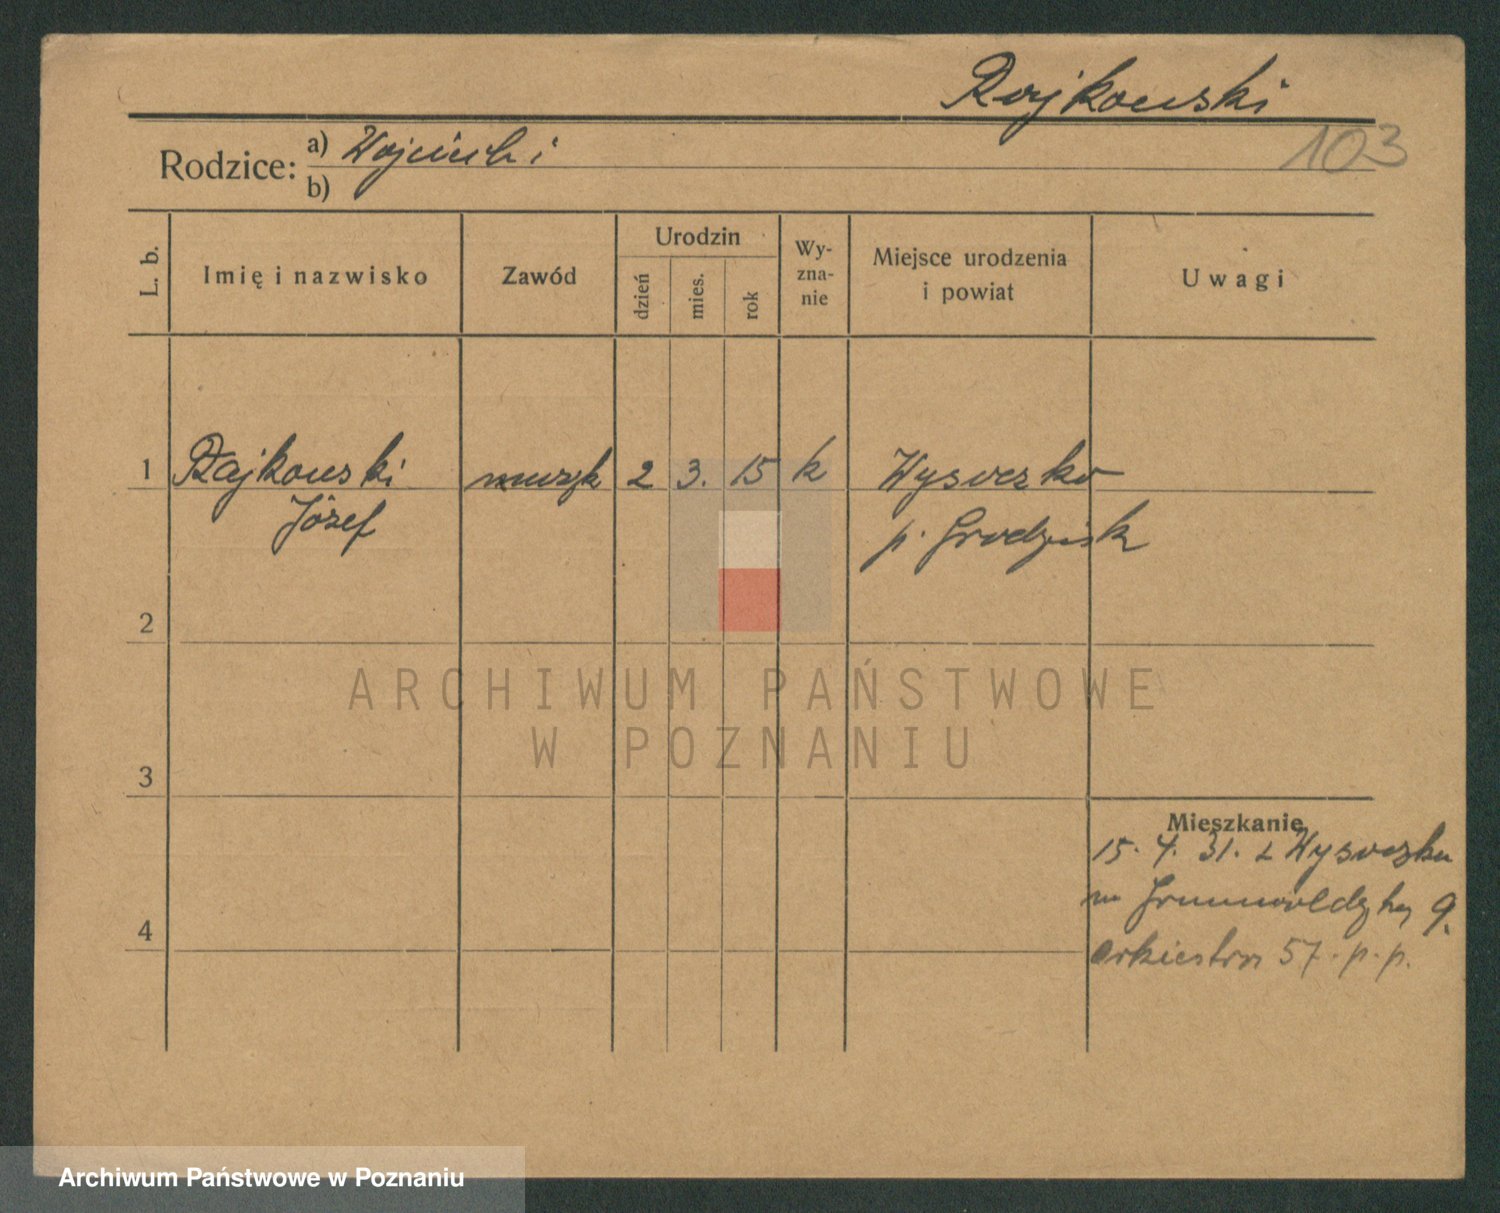 Rajkowski
103
Rodzice: a) Wojciech i
b)
L. b. Imię i nazwisko Zawód Urodzin dzień mies. rok Wy-zna-nie Miejsce urodzenia i powiat Uwagi
1 Rajkowski muzyk 2 3. 15 k Wysoczko
Józef p. Grodzisk
2
ARCHIWUM PAŃSTWOWE
W POZNANIU
3
Mieszkanie
15. 4. 31. z Wysoczka
4 na Grunwaldzką 9.
orkiestra 57. p. p.
Archiwum Państwowe w Poznaniu